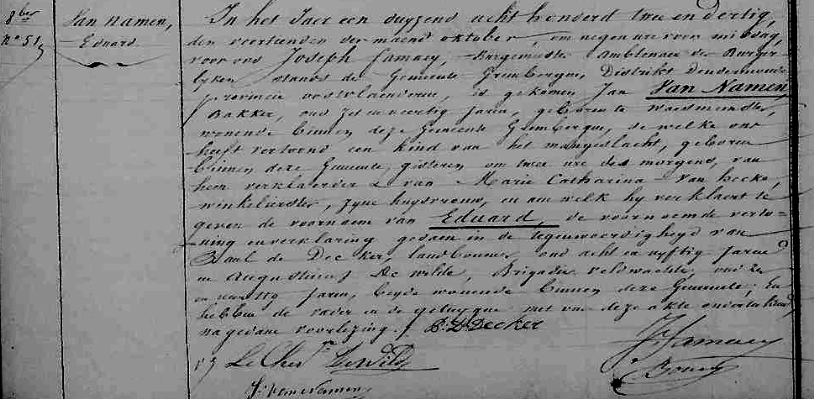 8ber
n° 51,
Van Namen,
Eduard
In het Jaer een duyzend acht honderd twee en dertig,
den veertienden der maend oktober, om negen ure voor middag,
voor ons Joseph Burgemeester Ambtenaer der Burger-
lyken stands der Gemeente Grembergen, Distrikt Dendermonde
provincie oostvlaenderen, is gekomen Jan Van Namen,
Bakker, oud en veertig jaren, geboren te Waesmunster,
wonende binnen deze Gemeente Grembergen, de welke ons
heeft vertoond een kind van het manngeslacht, geboren
binnen deze Gemeente, gisteren om twee ure des morgends, van
hem verklaerder & van Marie Catharina Van hecke,
winkelierster, zyne huysvrouw, en aen welk hy verklaert te
geven de voornaem van Eduard, de voornoemde verto-
ning en verklaring gedaen in de tegenwoordigheyd van
Paul de Decker, landbouwer, oud acht en vyftig jaren
en Augustinus De wilde, Brigadier veldwachter, oud
en jaren, beyde wonende binnen deze Gemeente; En
hebben de vader en de getuygen met ons deze akte onderteekend
na gedane voorlezing. P. D Decker
De Wilde
J: Van Namen